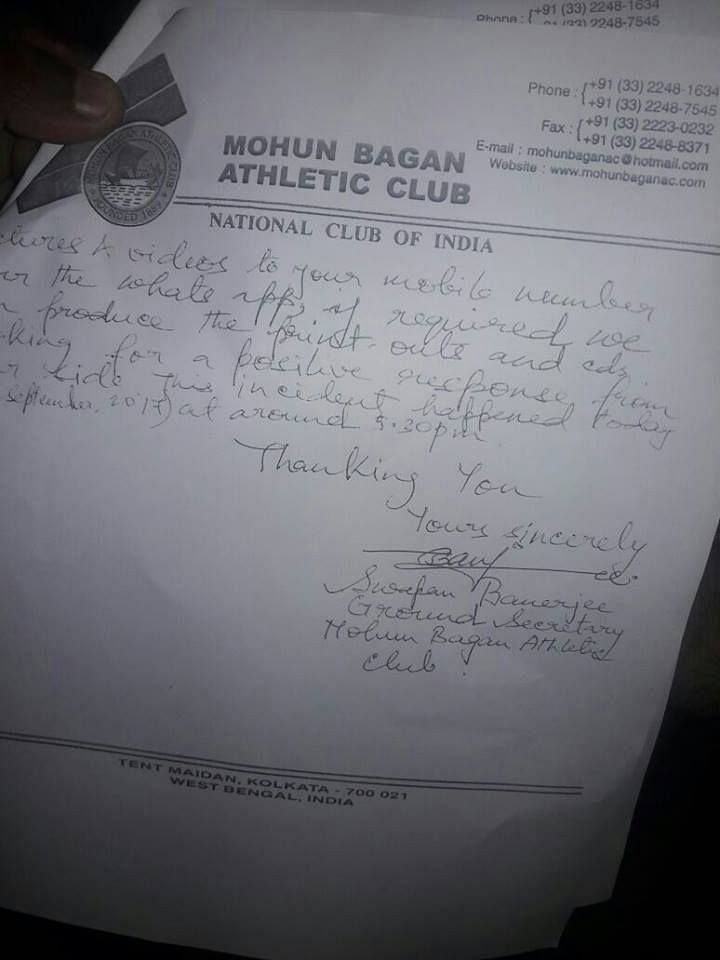 +91 (33) 2248-1634
Phone : { +91 (33) 2248-7545
Phone : { +91 (33) 2248-1634
+91 (33) 2248-7545
Fax : { +91 (33) 2223-0232
+91 (33) 2248-8371
E-mail : mohunbaganac@hotmail.com
Website : www.mohunbaganac.com
MOHUN BAGAN ATHLETIC CLUB
FOUNDED 1889
MOHUN BAGAN
ATHLETIC CLUB
NATIONAL CLUB OF INDIA
ctures & videos to your mobile number
the whats app, if required we
produce the print-outs and cds,
king for a positive response from
r side This incident happened today
september, 2017) at around 9.30pm
Thanking You
Yours sincerely
Swapan Banerjee
Ground Secretary
Mohun Bagan Athletic
Club.
TENT MAIDAN, KOLKATA - 700 021
WEST BENGAL, INDIA